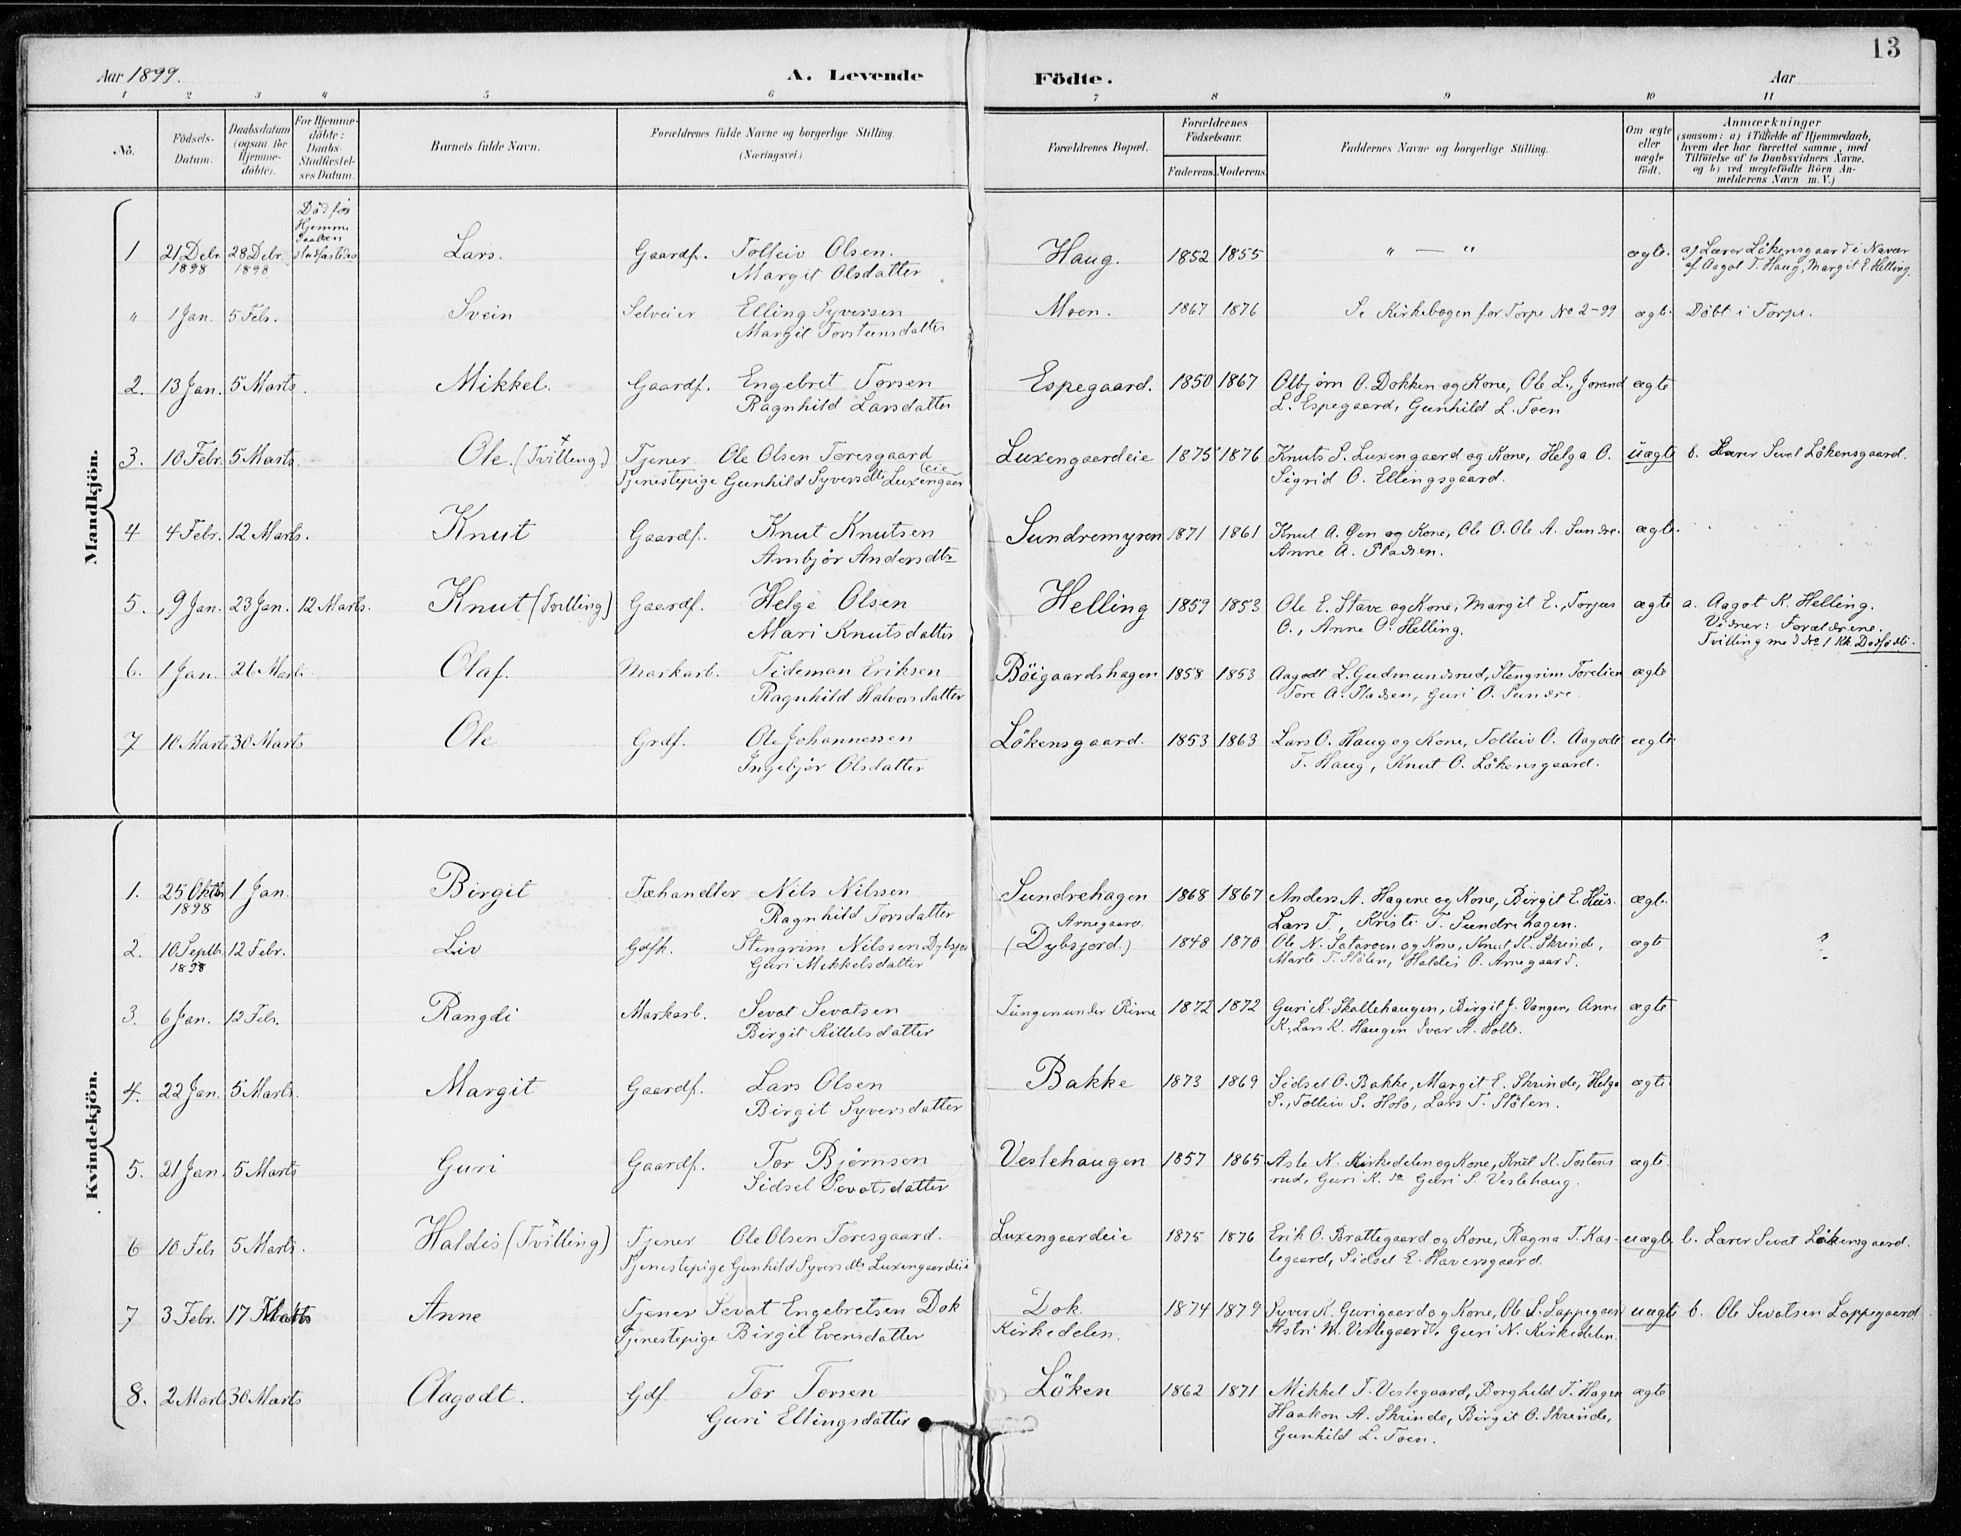 13
Aar 1899.
A. Levende
Födte.
Aar
1 2 3 4 5 6 7 8 9 10 11
No.
Födsels-Datum.
Daabsdatum (ogsaa for Hjemmedöbte).
For Hjemmedöbte: Daabs-Stadfæstelses Datum.
Barnets fulde Navn.
Forældrenes fulde Navne og borgerlige Stilling.
(Næringsvei)
Forældrenes Bopæl.
Forældrenes Födselsaar.
Faderens. Moderens.
Faddernes Navne og borgerlige Stilling.
Om ægte eller uægte födt.
Anmærkninger
(saasom: a) i Tilfælde af Hjemmedaab, hvem der har forrettet samme, med Tilföielse af to Daabsvidners Navne, og b) ved uægtefödte Börn Anmelderens Navn m. V.)
Mandkjön.
1 21 Debr. 1898 28 Debr. 1898 Död før Hjemmedaaben stadfæstedes Lars. Gaardf. Tolleiv Olsen. Haug. 1852 1855 " — " ægte. a) Lærer Lökensgaard i Nærvær
Margit Olsdatter af Aagot T. Haug, Margit E. Helling.
" 1 Jan. 5 Febr. Svein Selveier Elling Syversen Moen. 1867 1876 Se Kirkebogen for Torpe No 2-99 ægte. Döbt i Torpe.
Margit Torsteinsdatter
2. 13 Jan. 5 Marts. Mikkel. Gaardf. Engebret Torsen Espegaard. 1850 1867 Olbjörn O. Dokken og Kone, Ole L., Jorand ægte
Ragnhild Larsdatter L. Espegaard, Gunhild L. Toen
3. 10 Febr. 5 Marts. Ole. (Tvilling.) Tjener Ole Olsen Toresgaard Luxengaardeie 1875 1876 Knut S. Luxengaard og Kone, Helga O. uægte b. Lærer Sevat Lökensgaard.
Tjenestepige Gunhild Syversdtr Luxengaardeie Sigrid O. Ellingsgaard.
4 4 Febr. 12 Marts. Knut Gaardf. Knut Knutsen Sundremyren 1871 1861 Knut A. Öen og Kone, Ole O. Ole A. Sundre. ægte.
Ambjör Andersdtr Anne A. Pladsen.
5. 9 Jan. 23 Jan. 12 Marts. Knut (Tvilling) Gaardf. Helge Olsen Helling 1859 1853 Ole E. Stave og Kone, Margit E., Torjus ægte a. Aagot K. Helling.
Mari Knutsdatter O., Anne O. Helling. Vidner: Forældrene.
Tvilling med No 1 Kk Dödfödte.
6. 1 Jan. 26 Marts. Olaf. Markarb. Tideman Eriksen Böigaardshagen 1858 1853 Aagodt L. Gudmundsrud, Stengrim Tordien ægte
Ragnhild Halvorsdatter Tore A. Pladsen, Guri O. Sundre.
7 10 Marts 30 Marts Ole Grdf. Ole Johannessen Lökensgaard. 1853 1863 Lars O. Haug og Kone, Tolleiv O. Aagodt ægte.
Ingebjör Olsdatter T. Haug, Knut O. Lökensgaard.
Kvindekjön.
1. 25 Oktbr. 1898 1 Jan. Birgit Fæhandler Nils Nilssen Sundrehagen 1868 1867 Anders A. Hagene og Kone, Birgit E. Hus. ægte.
Ragnhild Torsdatter Lars T., Kristi T. Sundrehagen.
2. 10 Septbr. 1898 12 Febr. Liv Gdfk. Stengrim Nilssen Dybsjor Arnegaard (Dybsjord.) 1848 1870 Ole N. Sataroen og Kone, Knut K. Skrinde, ægte
Guri Mikkelsdatter Marte T. Stölen, Haldis O. Arnegaard.
3. 6 Jan. 12 Febr. Rangdi Markarb. Sevat Sevatsen Tungen under Rime 1872 1872 Guri K. Skallehaugen, Birgit J. Vangen, Anne ægte
Birgit Kittelsdatter K., Lars K. Haugen Ivar A. Holte.
4. 22 Jan. 5 Marts. Margit Gaardf. Lars Olsen Bakke 1873 1869 Sidsel O. Bakke, Margit E. Skrinde, Helga ægte.
Birgit Syversdatter S., Tolleiv S. Holo, Lars T. Stölen.
5. 21 Jan. 5 Marts Guri Gaardf. Tor Björnsen Veslehaugen 1857 1865 Asle N. Kirkedelen og Kone, Knut K. Tostens ægte.
Sidsel Sevatsdatter rud, Guri K. do Guri S. Veslehaug.
6 10 Febr. 5 Marts. Haldis (Tvilling) Tjener Ole Olsen Toresgaard. Luxengaardeie 1875 1876 Erik O. Brattegaard og Kone, Ragna T. Kas- uægte b. Lærer Sevat Lökensgaard.
Tjenestepige Gunhild Syversdtr Luxengaardeie legaard, Sidsel E. Haversgaard.
7 3 Febr. 17 Marts Anne Tjener Sevat Engebretsen Dok Dok. 1874 1879 Syver K. Gurigaard og Kone, Ole S. Lappegaard uægte b. Ole Sevatsen Lappegaard
Tjenestepige Birgit Evensdatter Kirkedelen. Astri M. Veslegaard, Guri N. Kirkedelen.
8. 2 Marts 30 Marts Aagodt. Gdf. Tor Torsen Löken 1862 1871 Mikkel T. Veslegaard, Borghild T. Hagen ægte
Guri Ellingsdatter Haakon A. Skrinde, Birgit O. Skrinde,
Gunhild L. Toen.